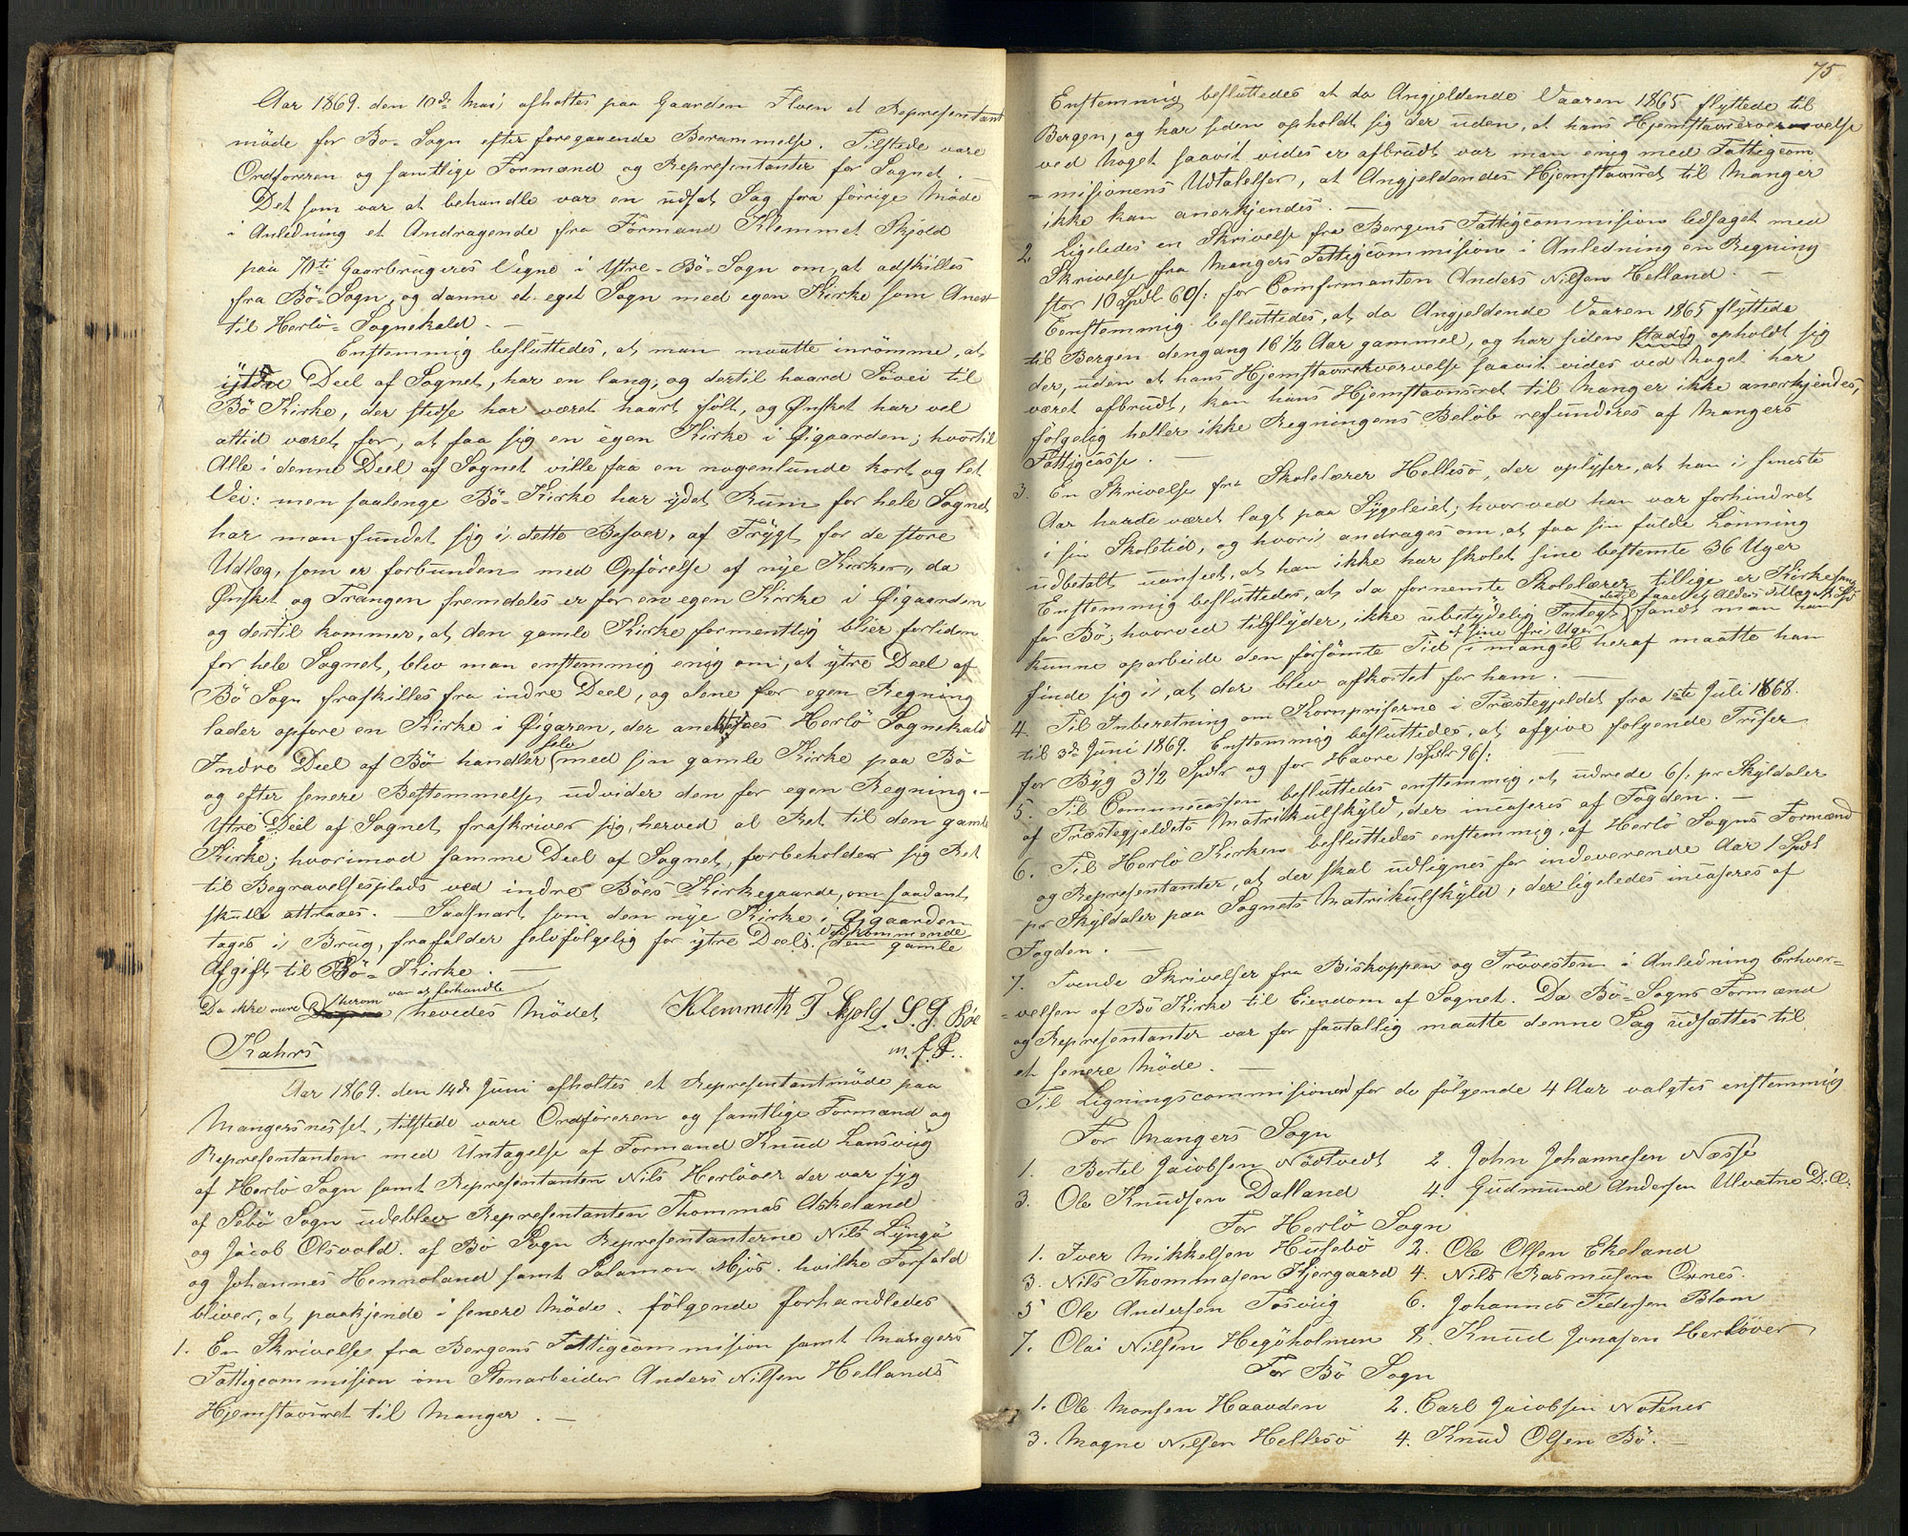 Aar 1869. den 10de Mai afholtes paa Gaarden Floen et Representant
möde for Bö-Sogn efter foregaaende Berammelse. Tilstede vare
Ordföreren og samtlige Formænd og Representanter for Sognet.
Det som var at behandle var en udsat Sag fra förrige Möde
i Anledning et Andragende fra Formand Klemmet Skjold
paa 70ti Gaarbrugeres Vegne i Ytre-Bö-Sogn om, at adskilles
fra Bö-Sogn, og danne et eget Sogn med egen Kirke som Anex
til Herlö-Sognekald. —
Enstemmig besluttedes, at man maatte inrömme, at
ijtre Deel af Sognet, har en lang, og dertil haard Sövei til
Bö Kirke, der stedse har været haart fölt, og Ønsket har vel
altid været for, at faa sig en egen Kirke i Øigaarden; hvortil
Alle i denne Deel af Sognet ville faa en nogenlunde kort og let
Vei: men saalenge Bö-Kirke har ydet Rum for hele Sognet
har man fundet sig i dette Besver, af Frÿgt for de store
Udlæg, som er forbunden med Opförelse af nye Kirker, da
Ønsket og Trangen fremdeles er for en egen Kirke i Øigaarden
og dertil kommer, at den gamle Kirke formentlig blier forliden
for hele Sognet, blev man enstemmig enig om, at ÿtre Deel af
Bö Sogn fraskilles fra indre Deel, og alene for egen Regning
lader opföre en Kirke i Øigaren, der anekteres Herlö Sognekald
Indre Deel af Bö handler selv med sin gamle Kirke paa Bö
og efter senere Bestemmelse, udvider den for egen Regning. —
Ytre Deel af Sognet, fraskriver sig, herved al Ret til den gamle
Kirke; hvorimod samme Deel af Sognet, forbeholder sig Ret
til Begravelsesplads ved indre Böes Kirkegaarde, om saadant
skulde attraaes. — Saasnart som den nye Kirke i Øigaarden
tages i Brug, frafalder selvfölgelig for ÿtre Deels Vedkommende den gamle
Afgift til Bö-Kirke. —
Da ikke mere herom var at forhandle hevedes Mödet Klemmeth T Skjold L. G. Böe
m. f. P..
Kahrs
Aar 1869. den 14de Juni afholtes et Representantmöde paa
Mangersnesset, tilstede vare Ordföreren og samtlige Formænd og
Representanter med Untagelse af Formand Knud Landsviig
af Herlö Sogn samt Representanten Nils Herlöver der var syg
af Sebö Sogn udeblev Representanten Thommas Askeland
og Jacob Olsvold. af Bö Sogn Representanterne Nils Lÿngö
og Johannes Hennoland samt Salamon Mjös. hvilke Forfald
bliver, at paakjende i senere Möde. fölgende forhandledes
1. En Skrivelse fra Bergens Fattigcommission samt Mangers
Fattigcommission om Stenarbeider Anders Nilsen Hellands
Hjemstavnsret til Manger. —
75
Enstemmig besluttedes at da Angjeldende Vaaren 1865 flyttede til
Bergen, og har siden opholdt sig der uden, at hans Hjemstavnserververvelse
ved Noget saavit vides er afbrudt var man enig med Fattigcom
-missionens Udtalelser, at Angjeldendes Hjemstavnsret til Manger
ikke kan anerkjendes. —
2 Ligeledes en Skrivelse fra Bergens Fattigcommission ledsaget med
Skrivelse fra Mangers Fattigcommission i Anledning en Regning
stor 10 Spdl 60/: for Comfirmanten Anders Nilsen Helland. —
Eenstemmig besluttedes, at da Angjeldende Vaaren 1865 flyttede
til Bergen dengang 16 1/2 Aar gammel, og har siden stadig opholdt sig
der, uden at hans Hjemstavnserververvelse saavit vides ved Noget har
været afbrudt, kan hans Hjemstavnsret til Manger ikke anerkjendes,
fölgelig heller ikke Regningens Belöb refunderes af Mangers
Fattigcasse. —
3. En Skrivelse fra Skolelærer Hellesö, der oplyser, at han i seneste
Aar havde været lagt paa Sygeleiet, hvorved han var forhindret
i sin Skoletid, og hvori andrages om, at faa sin fulde Lönning
udbetalt uanseet, at han ikke har skolet sine bestemte 36 Uger
Enstemmig besluttedes, at, da fornemte Skolelærer tillige er Kirkesang
for Bö, hvorved tilflyder, ikke ubetydelig Integt fandt man han
kunne oparbeide den forsömte Tid af sine fri Uger i mangel heraf maatte han
finde sig i, at der blev afkortet for ham. —
4. Til Inberetning om Kornpriserne i Præstegjeldet fra 1ste Juli 1868.
til 3de Juni 1869. Enstemmig besluttedes, at afgive fölgende Priser
for Bÿg 3 1/2 Spdr og for Havre 1 Spdr 96/:
5. Til Comunecassen besluttedes enstemmig, at udrede 6/: pr Skyldaler
af Præstegjeldets Matrikulskyld, der incaseres af Fogden. —
6. Til Herlö Kirken besluttedes enstemmig, af Herlö Sogns Formænd
og Representanter, at der skal udlignes for indeverende Aar 1 Spdl
pr Skyldaler paa Sognets Matrikulskyld, der ligeledes incaseres af
Fogden. —
7. Tvende Skrivelser fra Biskoppen og Provesten i Anledning Erhver-
-velsen af Bö Kirke til Eiendom af Sognet. Da Bö-Sogns Formænd
og Representanter var for faatallig maatte denne Sag udsættes til
et senere Möde. —
Til Ligningscommissionen for de fölgende 4 Aar valgtes enstemmig
For Mangers Sogn
1. Bertel Jacobsen Nödtvedt 2. John Johannesen Næsse
3. Ole Knudsen Dalland 4. Gudmund Andersen Ulvatne D. Æ.
For Herlö Sogn
1. Iver Mikkelsen Husebö 2. Ole Olsen Ekeland
3. Nils Thommasen Kjergaard 4. Nils Rasmusen Ornes.
5 Ole Andersen Tosviig 6. Johannes Pedersen Blom
7. Olai Nilsen Hegöholmen 8. Knud Jonasen Herlöver
For Bö Sogn
1. Ole Monsen Haavden 2. Carl Jacobsen Notenes
3. Mogne Nilsen Hellesö 4. Knud Olsen Bö. —